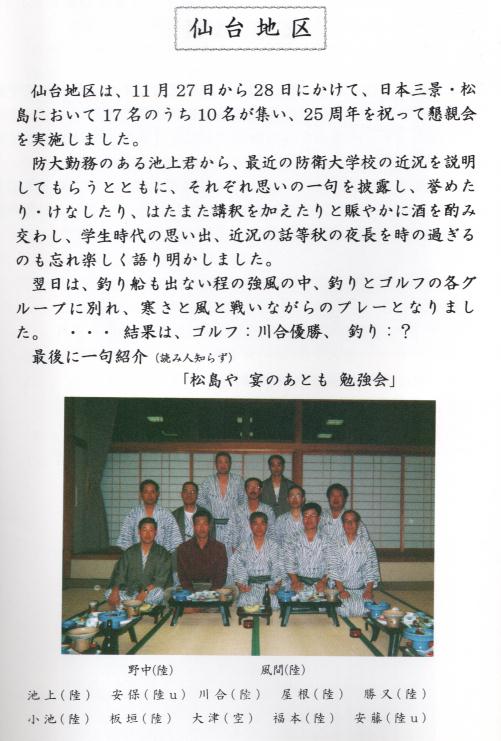 仙台地区
仙台地区は、11月27日から28日にかけて、日本三景・松
島において17名のうち10名が集い、25周年を祝って懇親会
を実施しました。
防大勤務のある池上君から、最近の防衛大学校の近況を説明
してもらうとともに、それぞれ思いの一句を披露し、誉めた
り・けなしたり、はたまた講釈を加えたりと賑やかに酒を酌み
交わし、学生時代の思い出、近況の話等秋の夜長を時の過ぎる
のも忘れ楽しく語り明かしました。
翌日は、釣り船も出ない程の強風の中、釣りとゴルフの各グ
ループに別れ、寒さと風と戦いながらのプレーとなりまし
た。 ・・・ 結果は、ゴルフ：川合優勝、 釣り：？
最後に一句紹介（読み人知らず）
「松島や 宴のあとも 勉強会」
野中(陸) 風間(陸)
池上(陸) 安保(陸u) 川合(陸) 屋根(陸) 勝又(陸)
小池(陸) 板垣(陸) 大津(空) 福本(陸) 安藤(陸u)